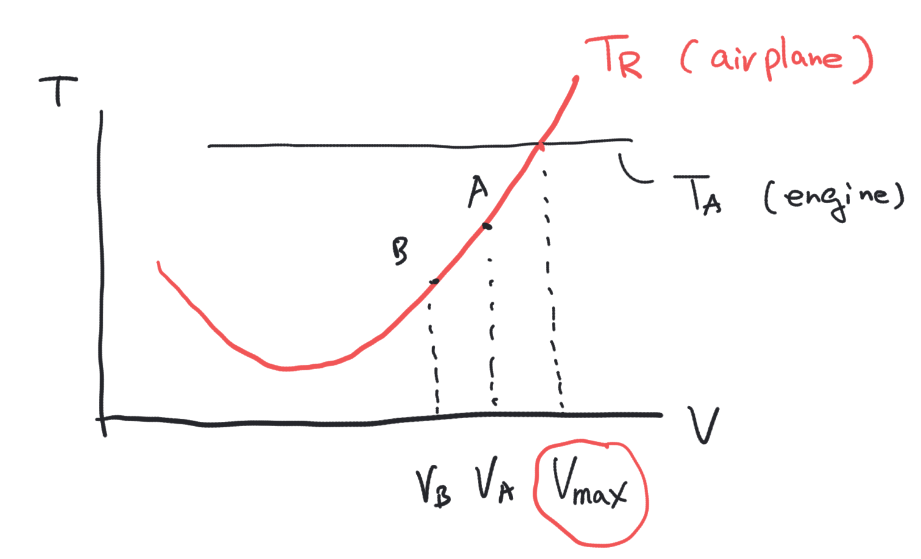 T_R (airplane)
T
T_A (engine)
A
B
V
V_B V_A V_max